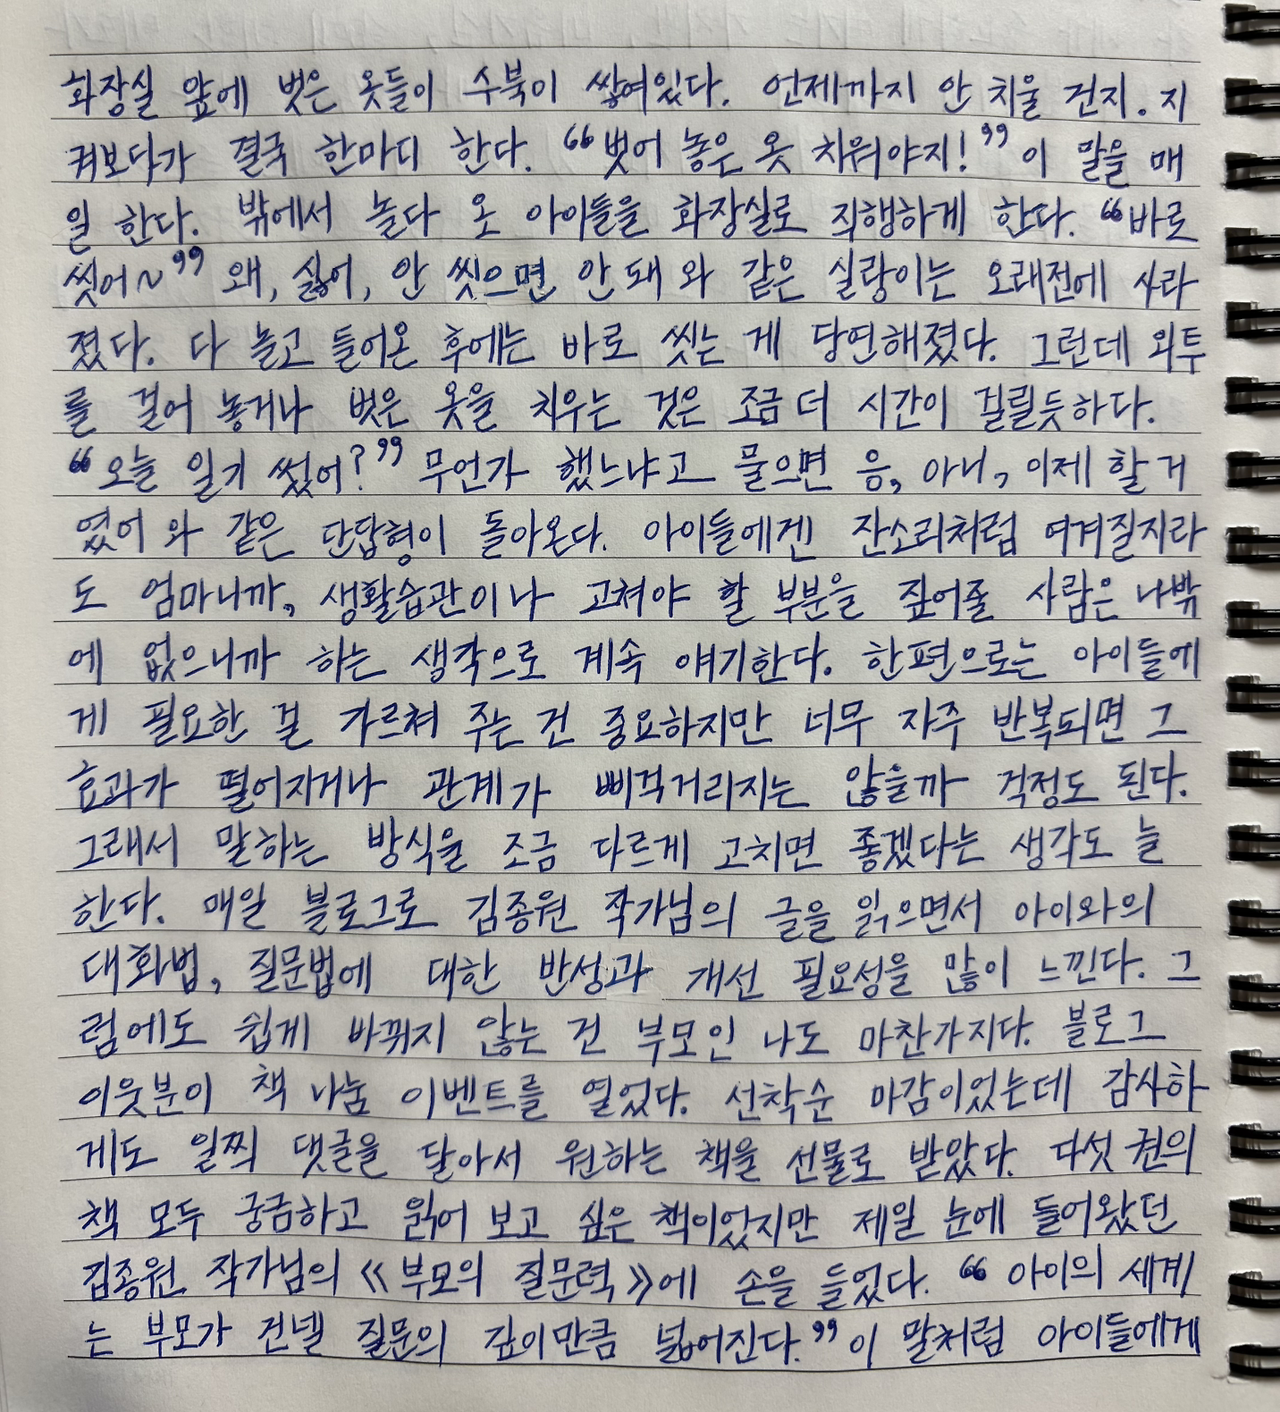 화장실 앞에 벗은 옷들이 수북이 쌓여있다. 언제까지 안 치울 건지. 지
켜보다가 결국 한마디 한다. “벗어 놓은 옷 치워야지!” 이 말을 매
일 한다. 밖에서 놀다 온 아이들을 화장실로 직행하게 한다. “바로
씻어~” 왜, 싫어, 안 씻으면 안 돼 와 같은 실랑이는 오래전에 사라
졌다. 다 놀고 들어온 후에는 바로 씻는 게 당연해졌다. 그런데 외투
를 걸어 놓거나 벗은 옷을 치우는 것은 조금 더 시간이 걸릴듯하다.
“오늘 일기 썼어?” 무언가 했느냐고 물으면 응, 아니, 이제 할 거
였어 와 같은 단답형이 돌아온다. 아이들에겐 잔소리처럼 여겨질지라
도 엄마니까, 생활습관이나 고쳐야 할 부분을 짚어줄 사람은 나밖
에 없으니까 하는 생각으로 계속 얘기한다. 한편으로는 아이들에
게 필요한 걸 가르쳐 주는 건 중요하지만 너무 자주 반복되면 그
효과가 떨어지거나 관계가 삐걱거리지는 않을까 걱정도 된다.
그래서 말하는 방식을 조금 다르게 고치면 좋겠다는 생각도 늘
한다. 매일 블로그로 김종원 작가님의 글을 읽으면서 아이와의
대화법, 질문법에 대한 반성과 개선 필요성을 많이 느낀다. 그
럼에도 쉽게 바뀌지 않는 건 부모인 나도 마찬가지다. 블로그
이웃분이 책 나눔 이벤트를 열었다. 선착순 마감이었는데 감사하
게도 일찍 댓글을 달아서 원하는 책을 선물로 받았다. 다섯 권의
책 모두 궁금하고 읽어 보고 싶은 책이었지만 제일 눈에 들어왔던
김종원 작가님의 《부모의 질문력》에 손을 들었다. “아이의 세계
는 부모가 건넬 질문의 깊이만큼 넓어진다.” 이 말처럼 아이들에게